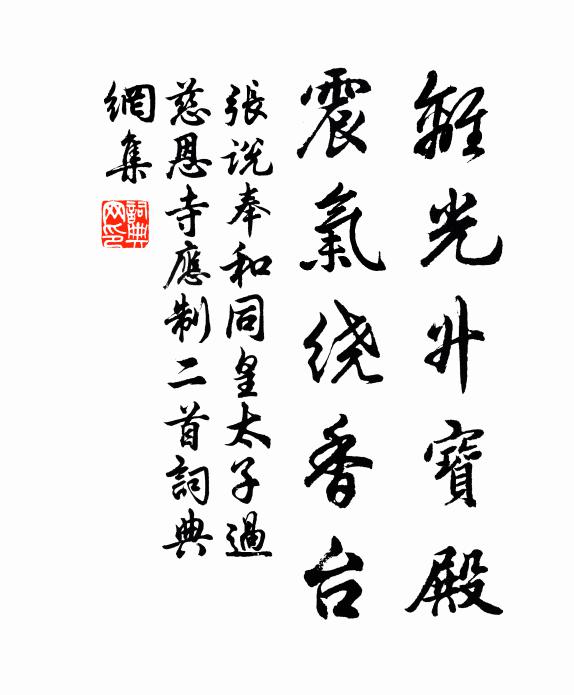 離光升寶殿
震氣绕香台
張説奉和同皇太子過
慈恩寺應制二首詞典
網集
詞典网印